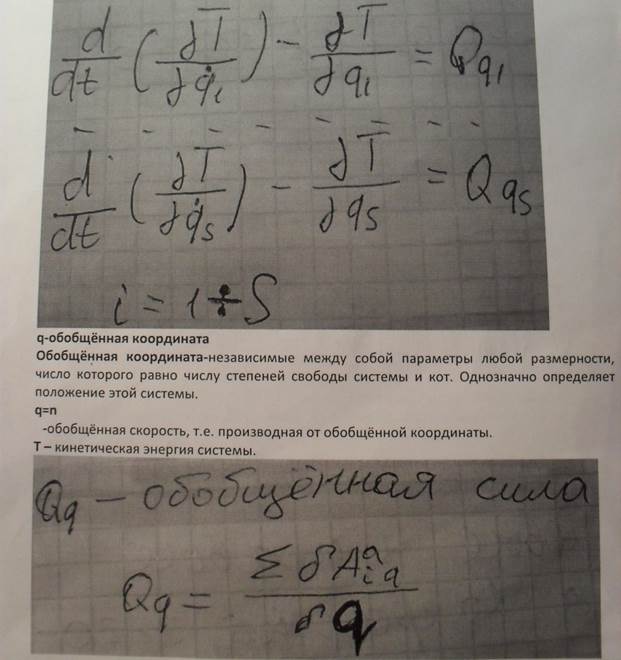 d/dt (∂T/∂q̇₁) - ∂T/∂q₁ = Qq₁
- - - - - - - -
d/dt (∂T/∂q̇s) - ∂T/∂qs = Qqs
i = 1 ÷ S
q-обобщённая координата
Обобщённая координата-независимые между собой параметры любой размерности,
число которого равно числу степеней свободы системы и кот. Однозначно определяет
положение этой системы.
q=n
-обобщённая скорость, т.е. производная от обобщённой координаты.
Т – кинетическая энергия системы.
Qq – обобщённая сила
Qq = Σ δAᵃi q / δq